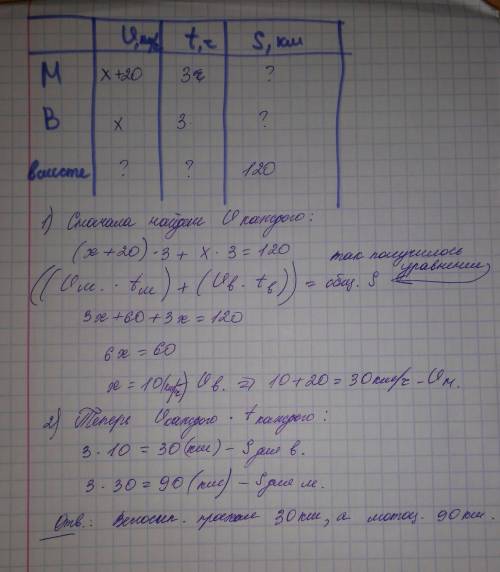 V, км/ч t, ч S, км
М x+20 3ч ?
В x 3 ?
вместе ? ? 120
1) Сначала найдём V каждого:
(x+20)·3 + x·3 = 120
так получилось
уравнение
((Vм. · tм) + (Vв · tв)) = общ. S
3x+60+3x=120
6x=60
x=10(км/ч) Vв. ⇒ 10+20=30км/ч - Vм.
2) Теперь Vкаждого · tкаждого:
3·10=30(км) - S для в.
3·30=90(км) - S для м.
Отв.: Велосип. 30км, а мотоц. 90км.